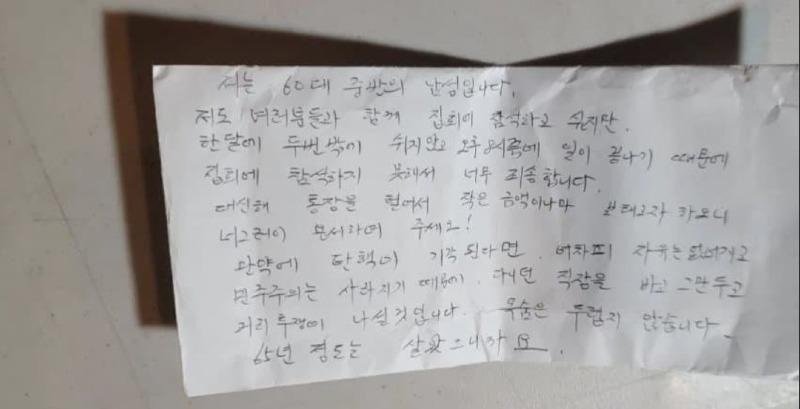 저는 60대 중반의 남성입니다.
저도 여러분들과 함께 집회에 참석하고 싶지만.
한달에 두번밖에 쉬지않고 오후8시쯤에 일이 끝나기 때문에
집회에 참석하지 못해서 너무 죄송합니다.
대신해 통장을 털어서 작은 금액이나마 보태고자 하오니
너그러이 용서하여 주세요!
만약에 탄핵이 기각된다면. 어차피 자유는 없어지고
민주주의는 사라지기 때문에. 다니던 직장을 바로 그만두고
거리투쟁에 나설것입니다. 목숨은 두렵지 않습니다
65년 정도는 살았으니까요.